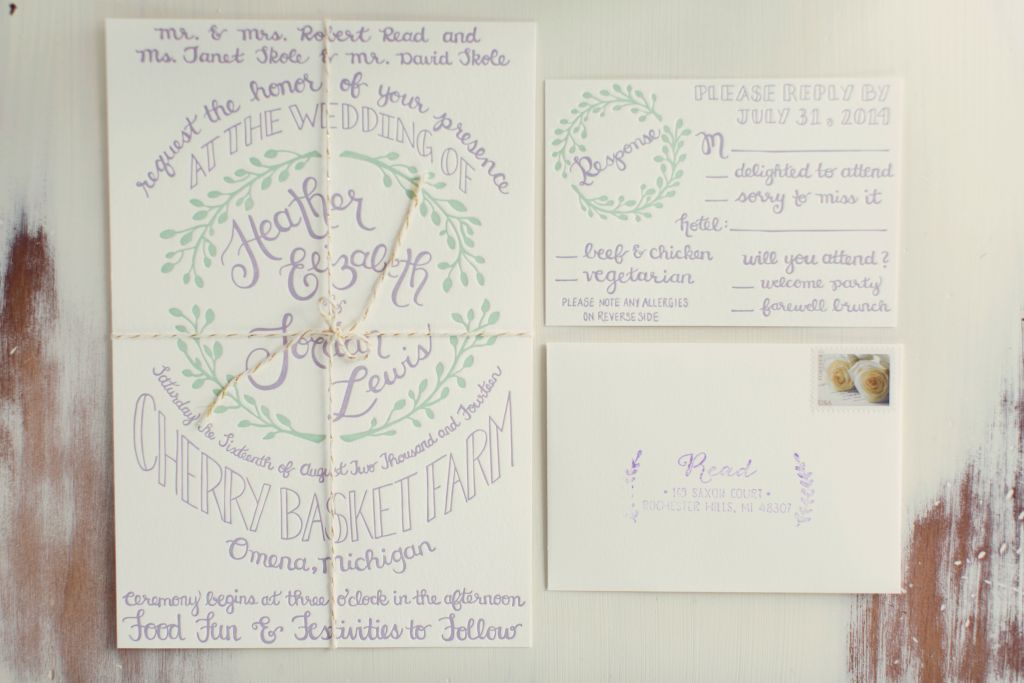 Mr. & Mrs. Robert Read and
Ms. Janet Skole & Mr. David Skole
request the honor of your presence
AT THE WEDDING OF
Heather
Elizabeth
&
Jordan
Lewis
Saturday the Sixteenth of August Two Thousand and Fourteen
CHERRY BASKET FARM
Omena, Michigan
Ceremony begins at three o'clock in the afternoon
Food Fun & Festivities to Follow
Response
PLEASE REPLY BY
JULY 31, 2014
M
delighted to attend
sorry to miss it
hotel:
beef & chicken
vegetarian
PLEASE NOTE ANY ALLERGIES
ON REVERSE SIDE
will you attend?
welcome party
farewell brunch
Read
• 163 SAXON COURT •
ROCHESTER HILLS, MI 48307
USA